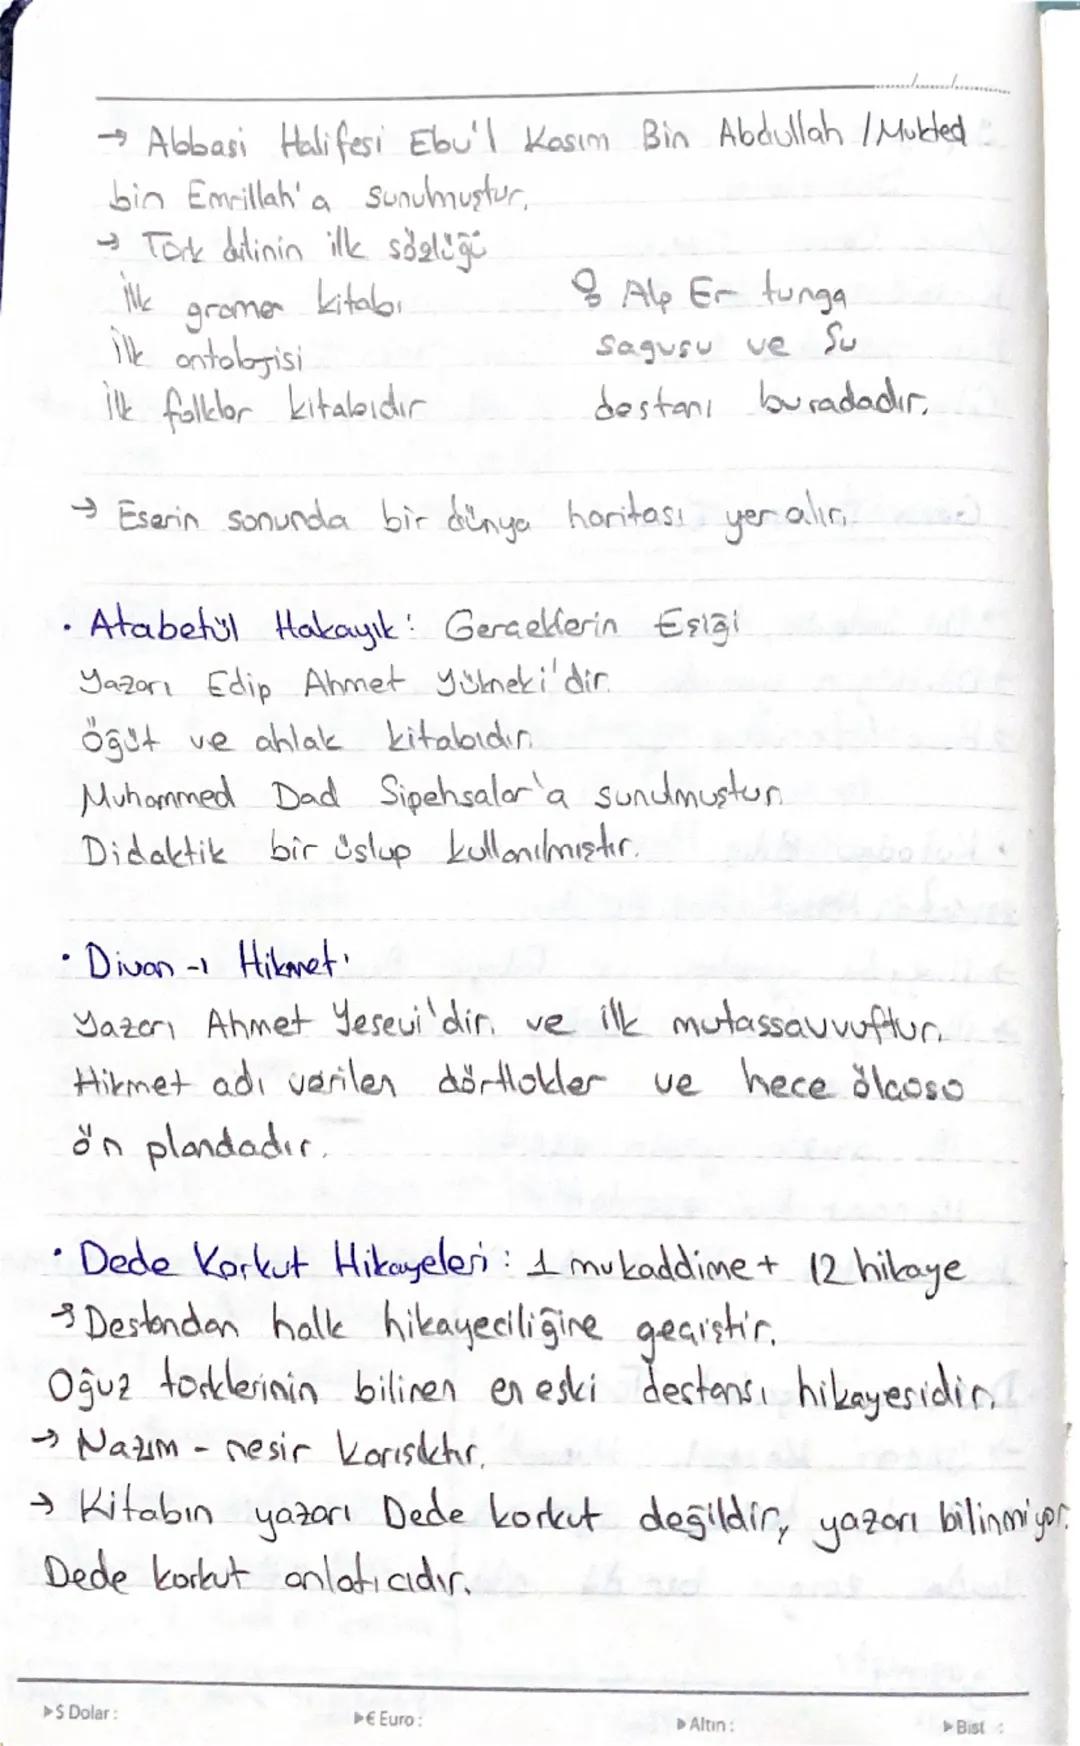 → Abbasi Halifesi Ebu'l Kasım Bin Abdullah / Mukted
bin Emrillah'a sunulmuştur.
→ Türk dilinin ilk sözlüğü
ilk gramer kitabı
ilk antolojisi
ilk folklor kitabıdır
Alp Er tunga
sagusu ve Su
destanı buradadır.
→ Eserin sonunda bir dünya haritası yer alır.
• Atabetül Hakayık: Gerçeklerin Eşiği
Yazarı Edip Ahmet Yükneki'dir.
Öğüt ve ahlak kitabıdır.
Muhammed Dad Sipehsalar'a sunulmuştur.
Didaktik bir üslup kullanılmıştır.
• Divan-ı Hikmet:
Yazarı Ahmet Yesevi'dir. ve ilk mutassavvuftur.
Hikmet adı verilen dörtlükler ve hece ölçüsü
ön plandadır.
• Dede Korkut Hikayeleri: 1 mukaddime + 12 hikaye
→ Destandan halk hikayeciliğine geçiştir.
Oğuz türklerinin bilinen en eski destansı hikayesidir.
→ Nazım - nesir karışıktır.
→ Kitabın yazarı Dede korkut değildir, yazarı bilinmiyor.
Dede korkut anlatıcıdır.
▶$ Dolar :
▶€ Euro :
▶Altın :
▶Bist :